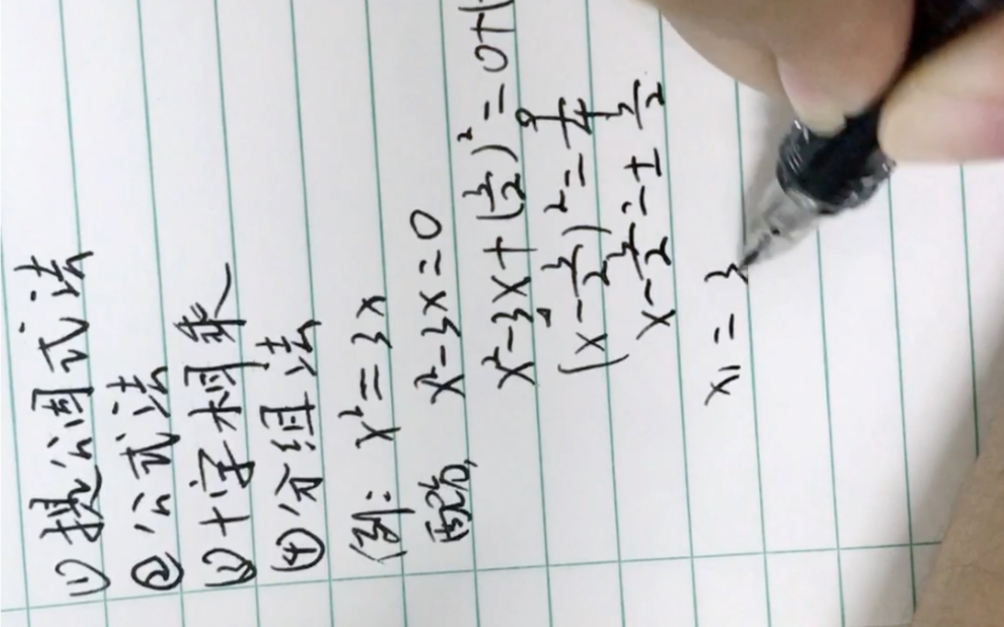 (1)提公因式法
②公式法
(3)十字相乘
(4)分组法
例: x²=3x
x²-3x=0
x²-3x+(3/2)²=0+(
(x-3/2)²=9/4
x-3/2=±3/2
x₁=3